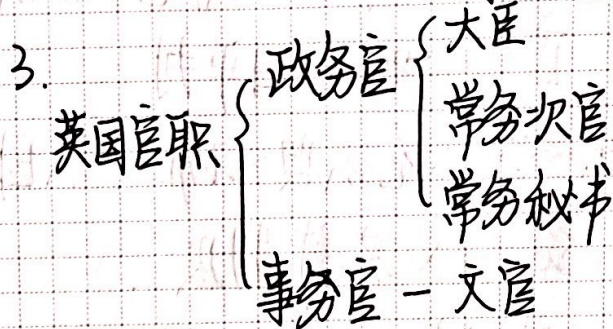 3.
英国官职 { 政务官 { 大臣
常务次官
常务秘书
事务官 — 文官